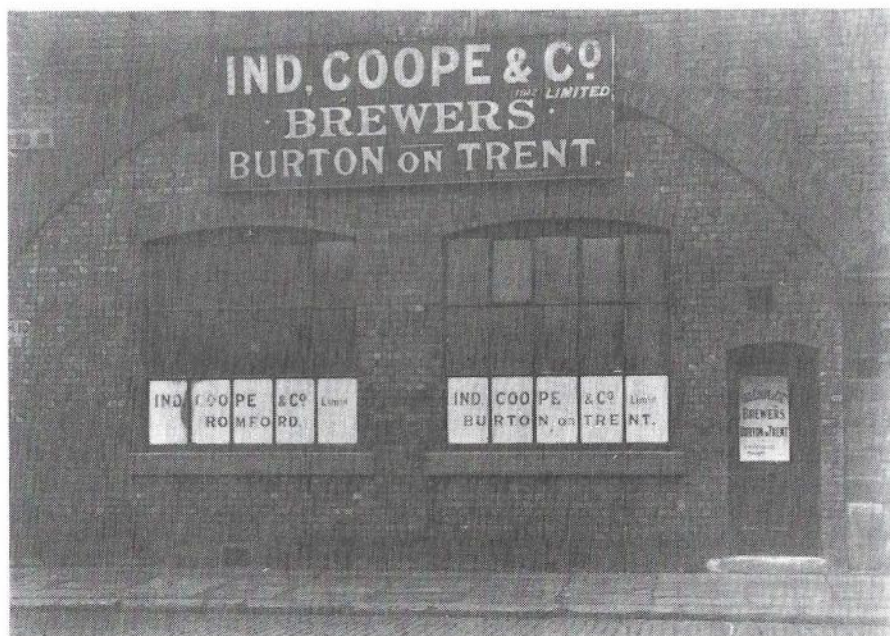 IND, COOPE & Co
1912 LIMITED
· BREWERS ·
BURTON ON TRENT.
IND COOPE & Co Limtd
ROMFORD.
IND COOPE & Co Limtd
BURTON on TRENT.
BREWERS
BURTON on TRENT